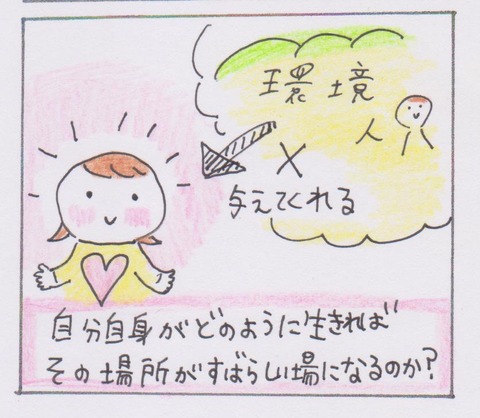 環境
人
×
与えてくれる
自分自身がどのように生きれば
その場所がすばらしい場になるのか?